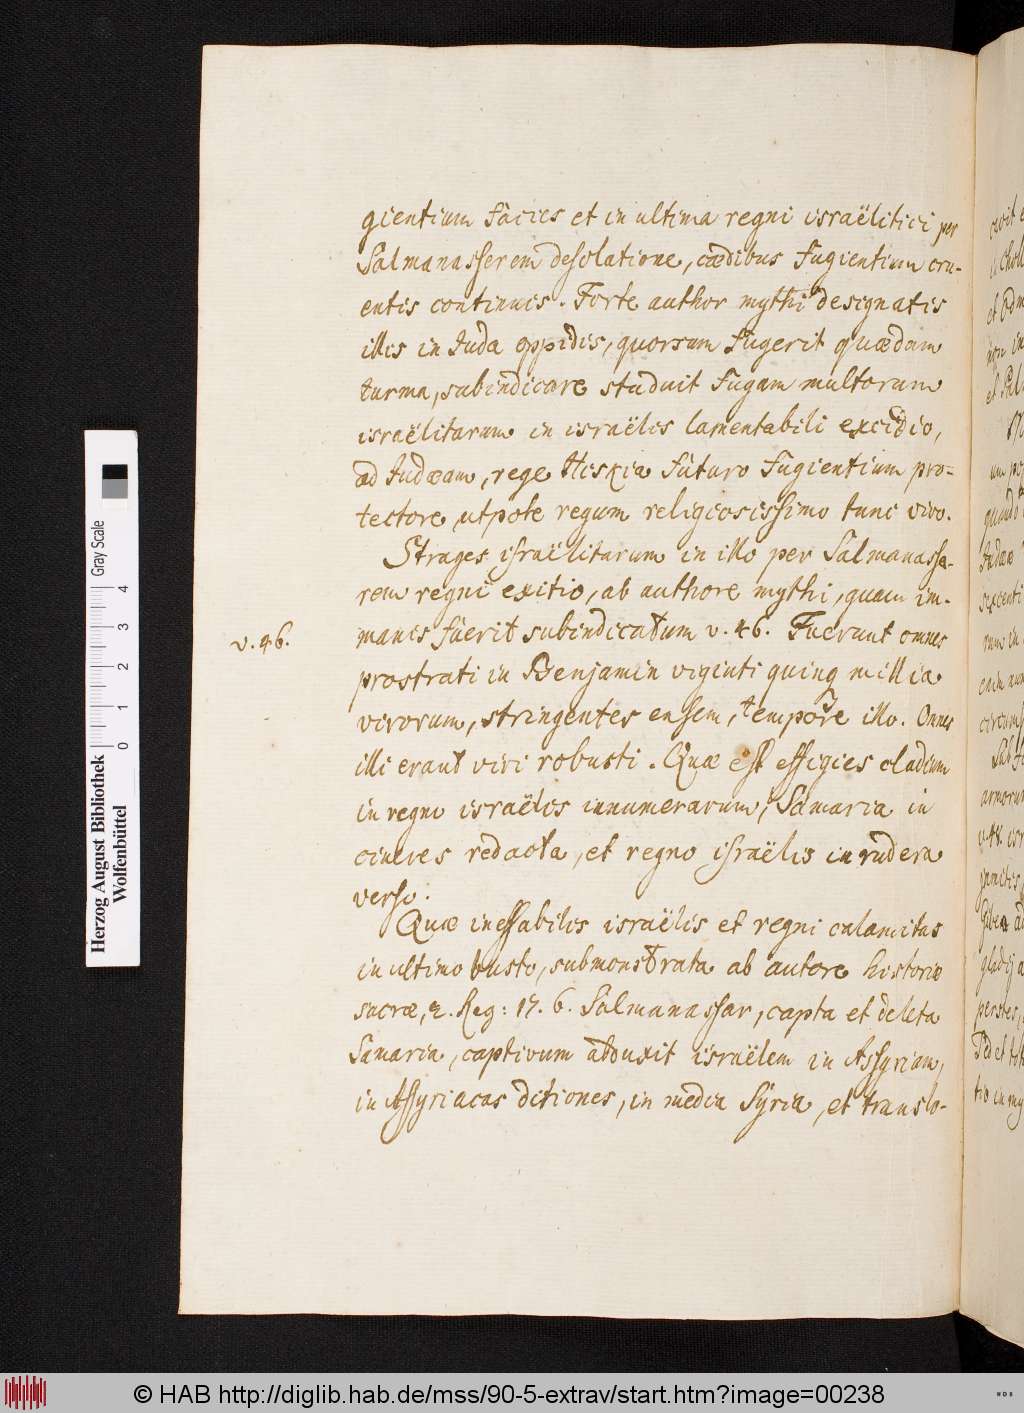 gientium facies et in ultima regni israëlitici per
Salmanasserem desolatione, cædibus fugientium cru-
entis continuis. Forte author mythi designatis
illis in Juda oppidis, quorsum fugerit quædam
turma, subindicare studuit fugam multorum
israëlitarum in israëlis lamentabili excidio,
ad Judæam, rege Hiskia futuro fugientium pro-
tectore, utpote regum religiosissimo tunc vivo.
Strages israëlitarum in illo per Salmanasse-
rem regni exitio, ab authore mythi, quam im-
v. 46.
manis fuerit subindicatum v. 46. Fuerunt omnes
prostrati in Benjamin viginti quinq millia
virorum, stringentes ensem, tempore illo. Omnes
illi erant viri robusti. Quæ est effigies cladium
in regno israëlis innumerarum, Samaria in
cineres redacta, et regno israëlis in rudera
verso.
Quæ ineffabilis israëlis et regni calamitas
in ultimo busto, submonstrata ab autore historiæ
sacræ, 2. Reg: 17. 6. Salmanassar, capta et deleta
Samaria, captivum abduxit israëlem in Assyriam,
in Assyriacas ditiones, in media Syria, et translo-
Herzog August Bibliothek
Wolfenbüttel
0 1 2 3 4
Gray Scale
© HAB http://diglib.hab.de/mss/90-5-extrav/start.htm?image=00238